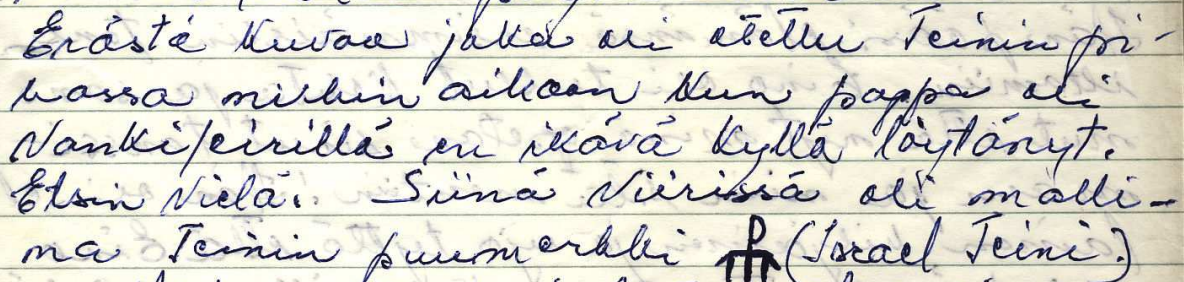 Erästä kuvaa joka oli otettu Teinin pi-
hassa niihin aikoon kun pappa oli
Vankileirillä en ikävä kyllä löytänyt.
Etsin vielä. Siinä Viirissä oli malli-
na Teinin puumerkki (Israel Teini.)